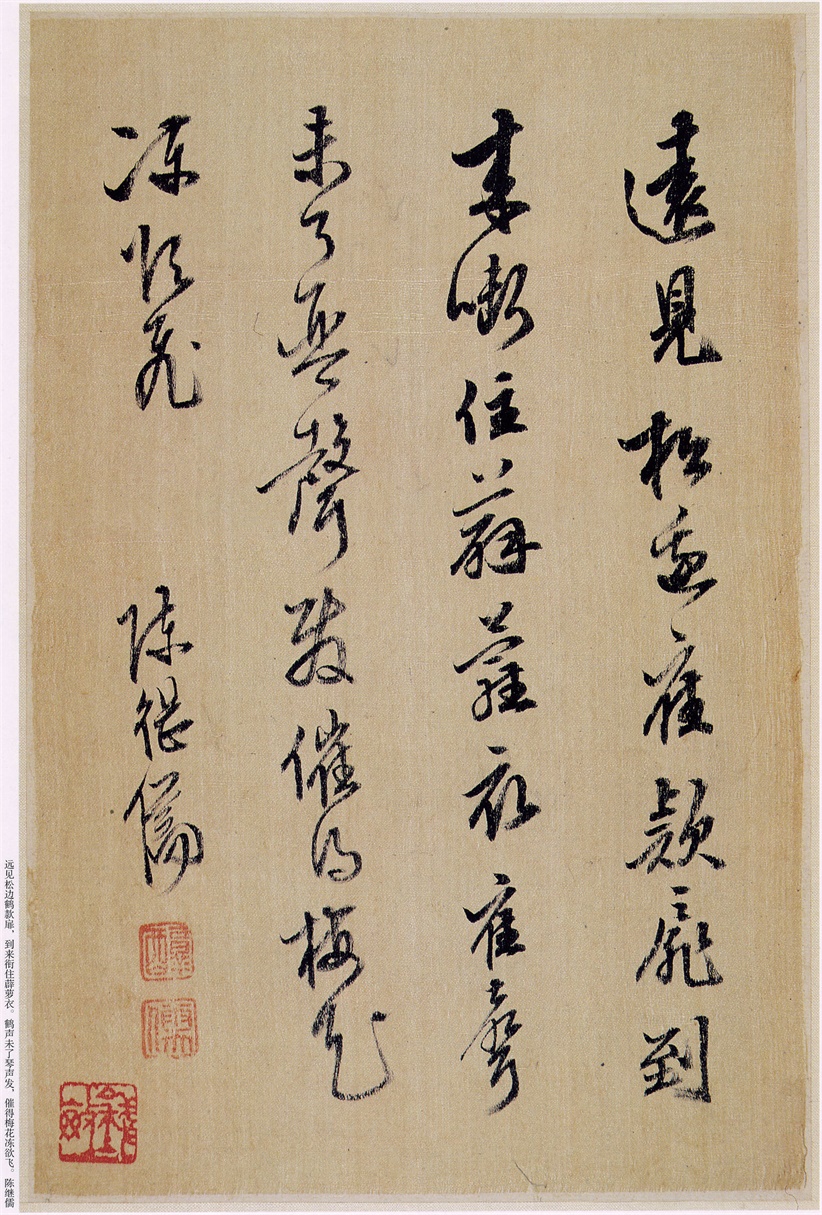 遠見松邊隺款扉到
来啣住薜蘿衣隺聲
未了琴聲發催得梅花
凍欲飛
陳繼儒
远见松边鹤款扉，到来衔住薜萝衣。鹤声未了琴声发，催得梅花冻欲飞。 陈继儒